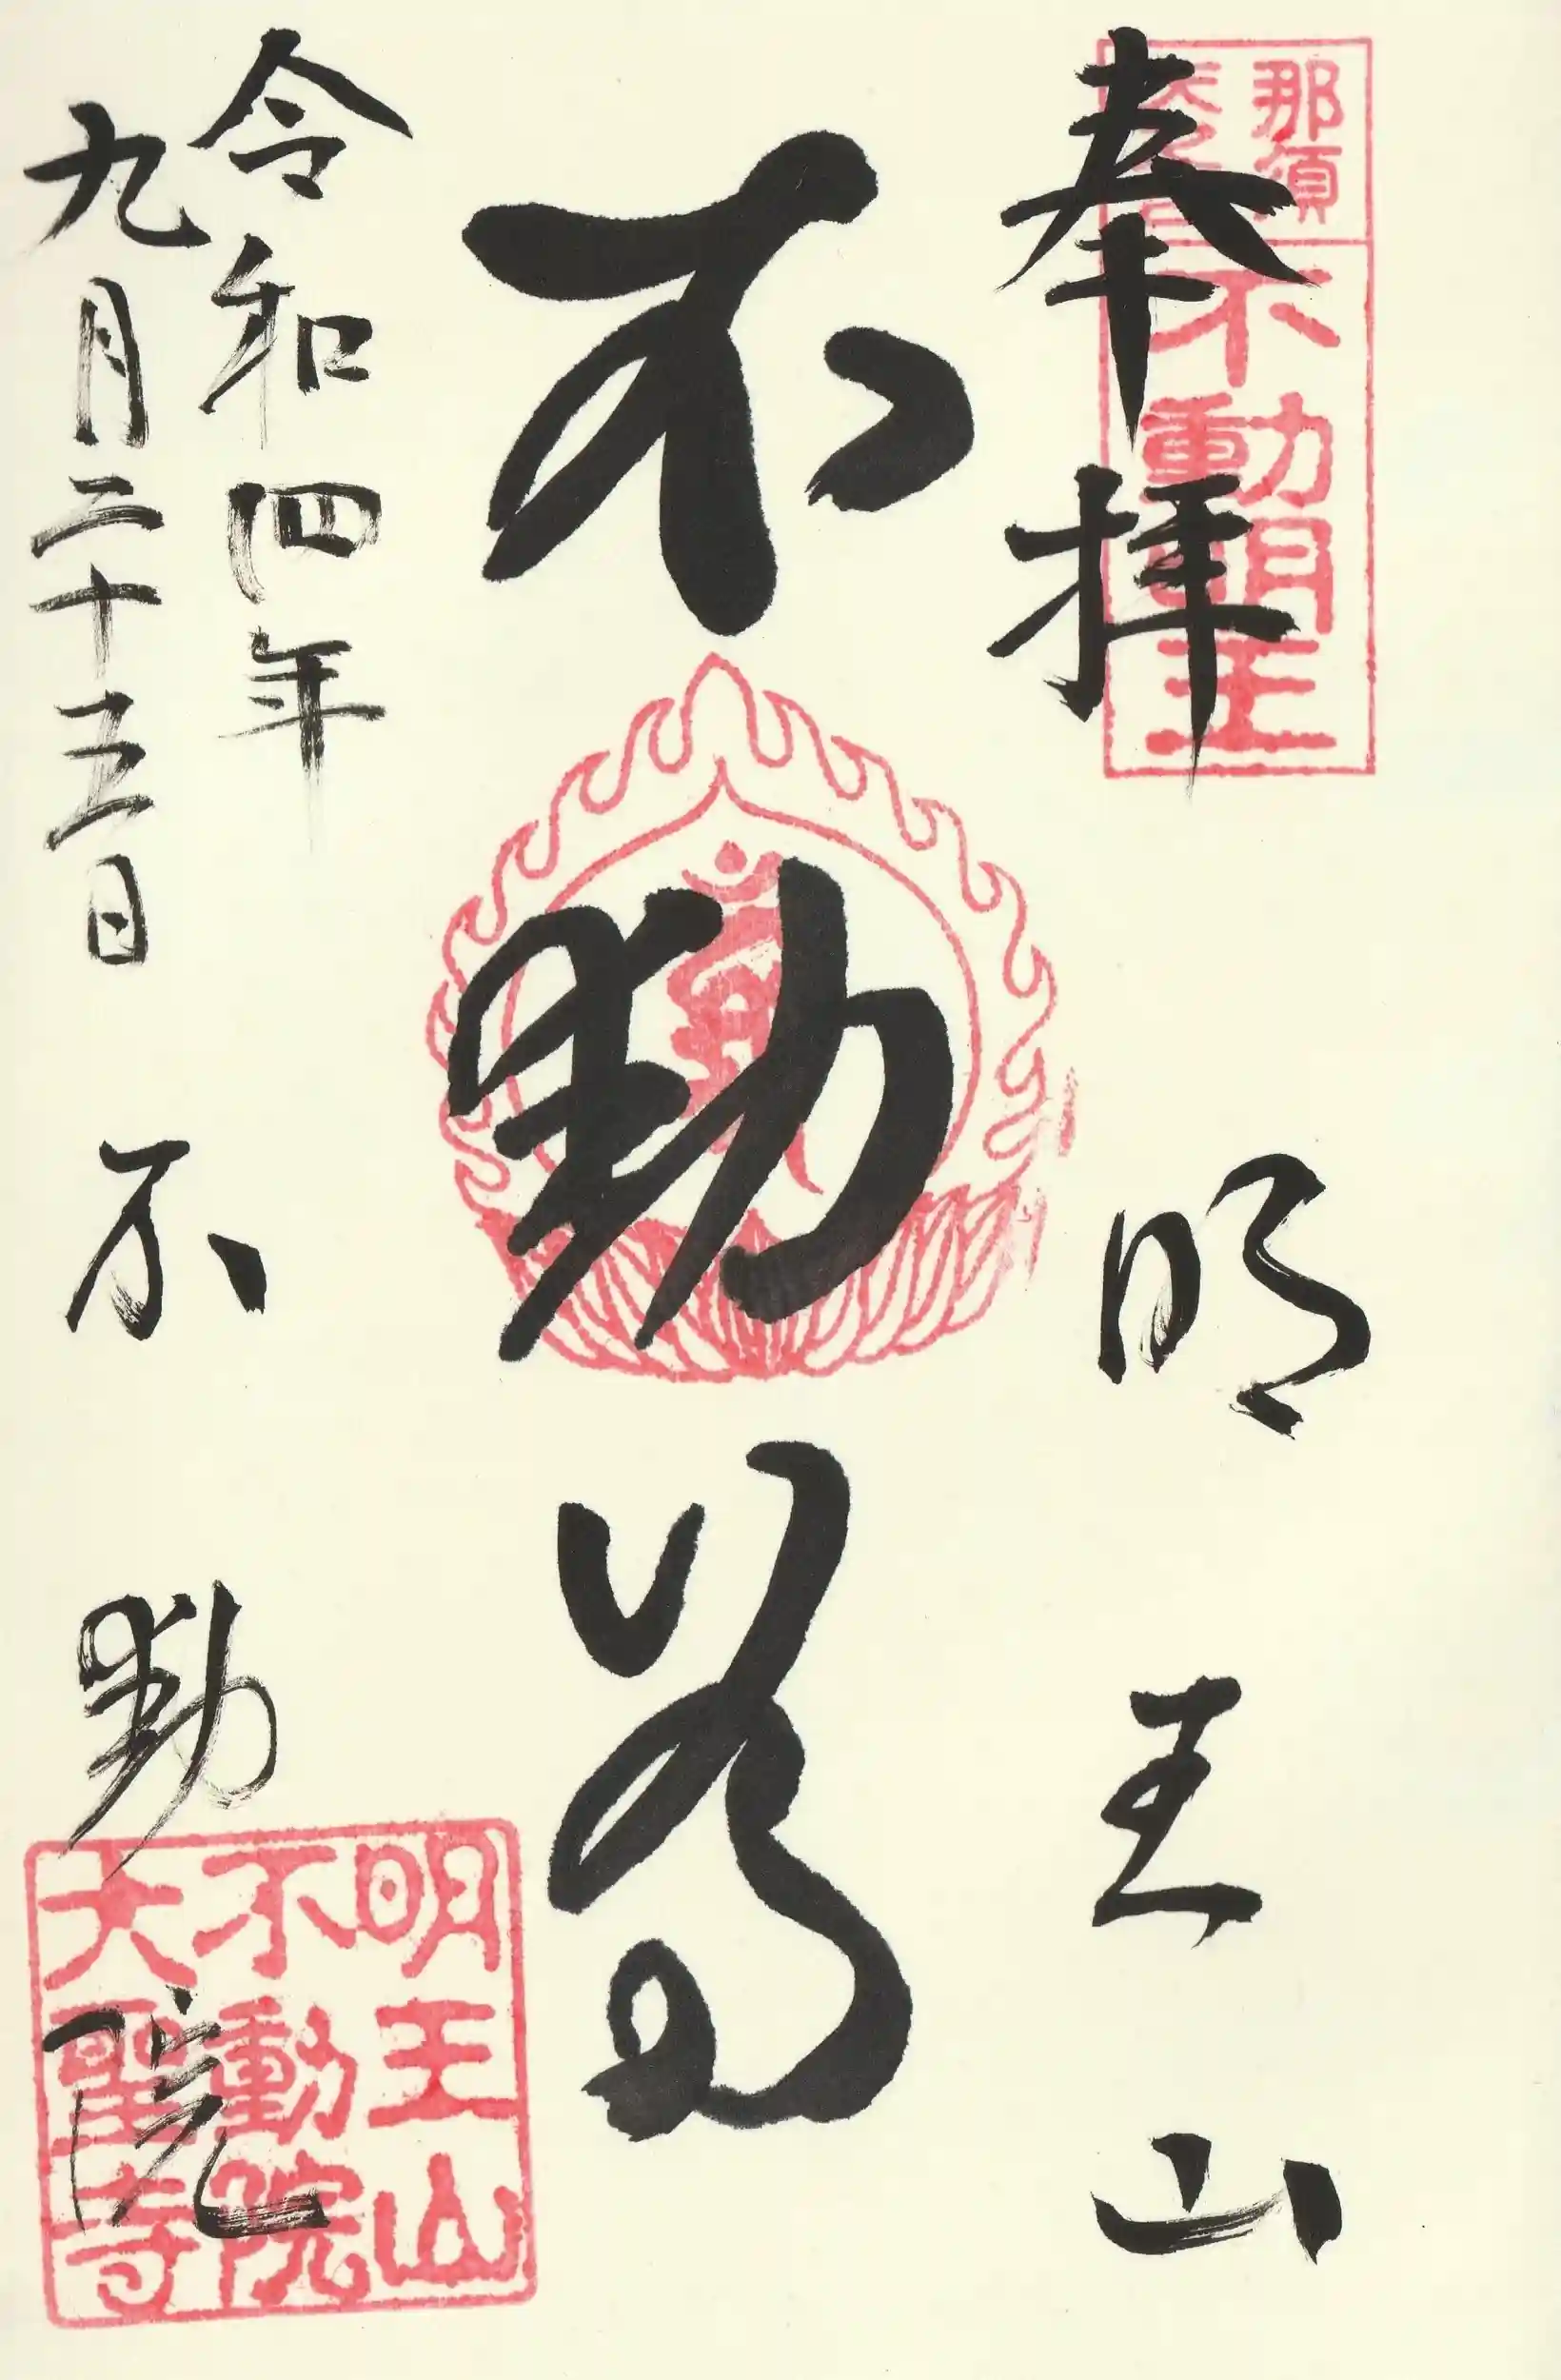 奉拝
明王山
不動尊
令和四年
九月二十五日
不動院
那須
不動明王
明王山
不動院
大聖寺